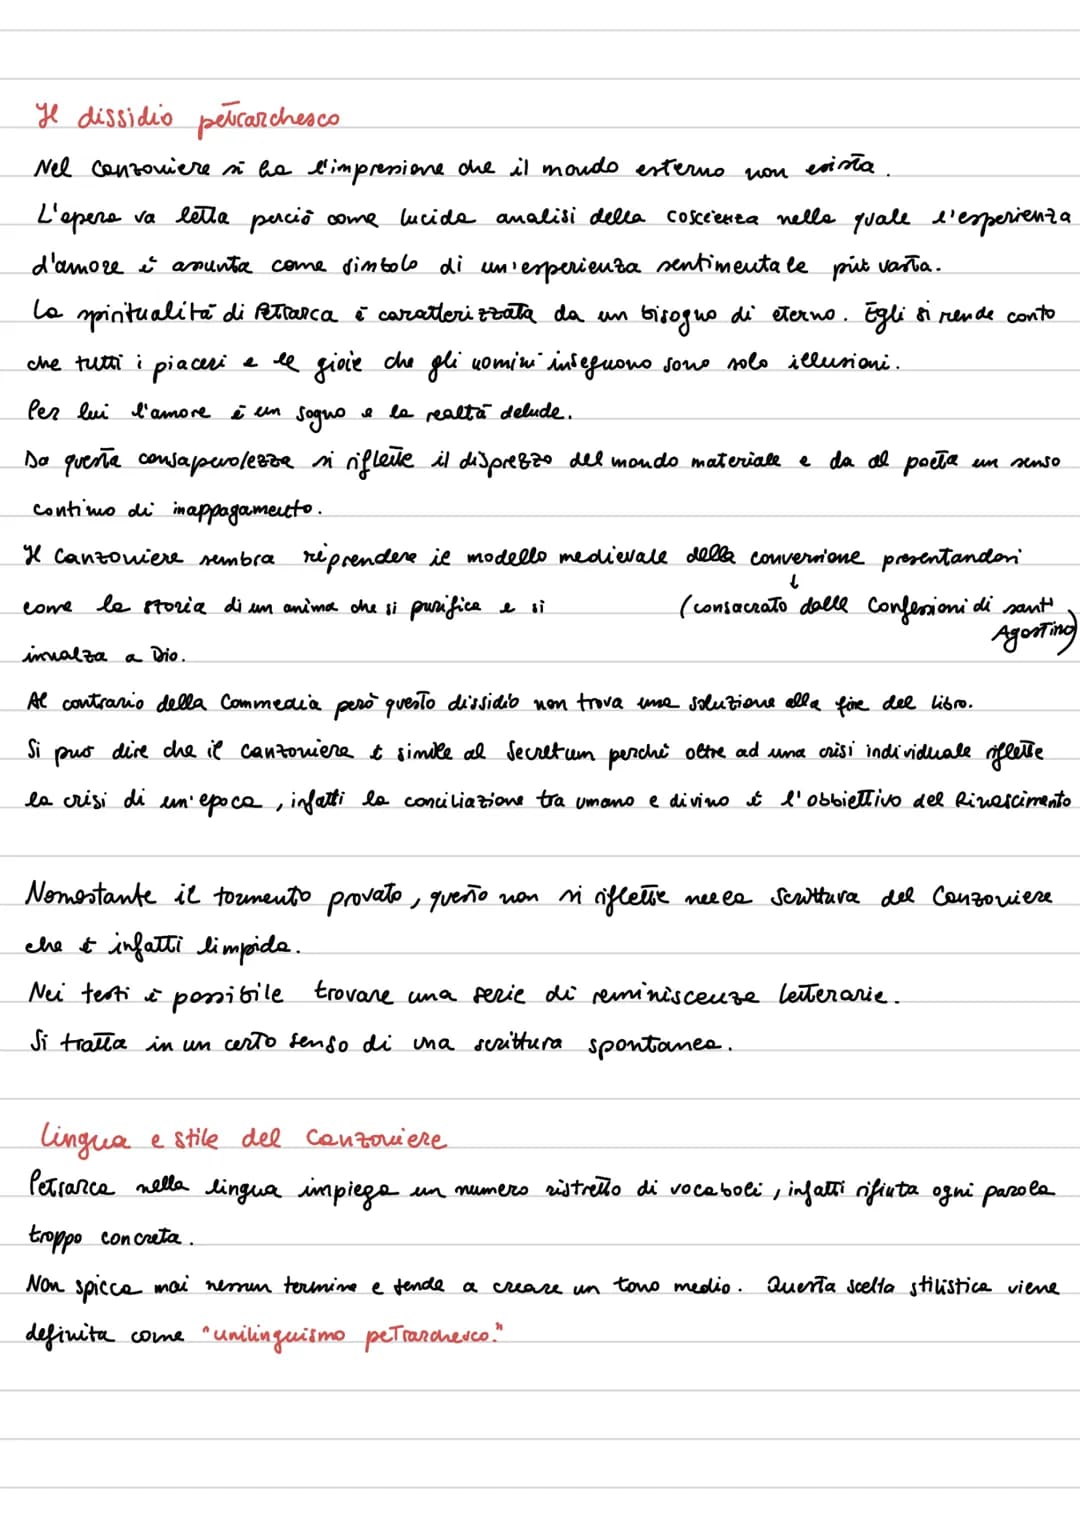 Il dissidio petrarchesco
Nel Canzoniere si ha l'impressione che il mondo esterno non esista.
L'opera va letta perciò come lucida analisi della coscienza nella quale l'esperienza
d'amore è assunta come simbolo di un'esperienza sentimentale più vasta.
La spiritualità di Petrarca è caratterizzata da un bisogno di eterno. Egli si rende conto
che tutti i piaceri e le gioie che gli uomini inseguono sono solo illusioni.
Per lui l'amore è un sogno e la realtà delude.
Da questa consapevolezza si riflette il disprezzo del mondo materiale e da al poeta un senso
continuo di inappagamento.
Il Canzoniere sembra riprendere il modello medievale della conversione presentandosi
↓
come la storia di un anima che si purifica e si (consacrato dalle Confessioni di sant'
Agostino)
innalza a Dio.
Al contrario della Commedia però questo dissidio non trova una soluzione alla fine del libro.
Si può dire che il Canzoniere è simile al Secretum perché oltre ad una crisi individuale riflette
la crisi di un'epoca, infatti la conciliazione tra umano e divino è l'obbiettivo del Rinascimento
Nonostante il tormento provato, questo non si riflette nella scrittura del Canzoniere
che è infatti limpida.
Nei testi è possibile trovare una serie di reminiscenze letterarie.
Si tratta in un certo senso di una scrittura spontanea.
Lingua e stile del Canzoniere
Petrarca nella lingua impiega un numero ristretto di vocaboli, infatti rifiuta ogni parola
troppo concreta.
Non spicca mai nessun termine e tende a creare un tono medio. Questa scelta stilistica viene
definita come "unilinguismo petrarchesco."